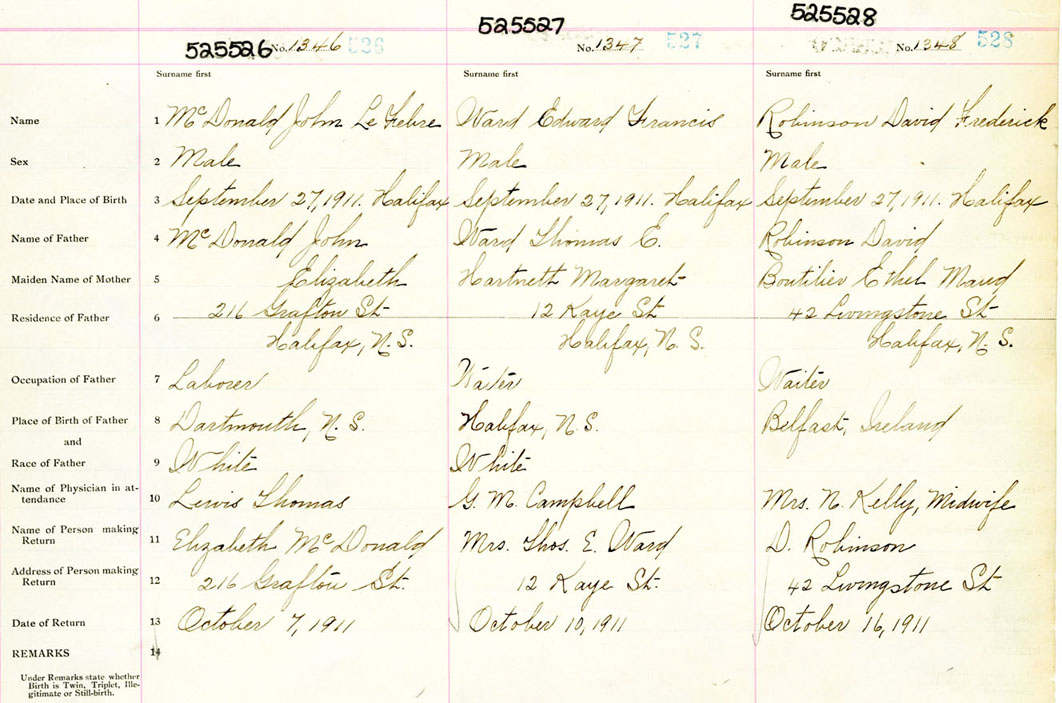 525526 No. 1346 526 525527 No. 1347 527 525528 No. 1348 528
Surname first Surname first Surname first
Name 1 McDonald John Le Febre Ward Edward Francis Robinson David Frederick
Sex 2 Male Male Male
Date and Place of Birth 3 September 27, 1911. Halifax September 27, 1911. Halifax September 27, 1911. Halifax
Name of Father 4 McDonald John Ward Thomas E. Robinson David
Maiden Name of Mother 5 Elizabeth Hartnett Margaret Boutilier Ethel Maud
Residence of Father 6 216 Grafton St 12 Kaye St 42 Livingstone St
Halifax, N.S. Halifax, N.S. Halifax, N.S.
Occupation of Father 7 Laborer Waiter Waiter
Place of Birth of Father 8 Dartmouth, N.S. Halifax, N.S. Belfast, Ireland
and
Race of Father 9 White White
Name of Physician in at-
tendance 10 Lewis Thomas G. M. Campbell Mrs. N. Kelly, Midwife
Name of Person making
Return 11 Elizabeth McDonald Mrs. Thos. E. Ward D. Robinson
Address of Person making
Return 12 216 Grafton St. 12 Kaye St. 42 Livingstone St
Date of Return 13 October 7, 1911 October 10, 1911 October 16, 1911
REMARKS 14
Under Remarks state whether
Birth is Twin, Triplet, Ille-
gitimate or Still-birth.